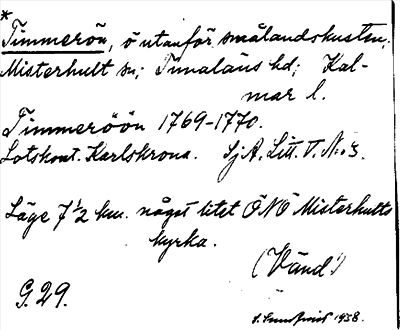 *
Timmerön, ö utanför smålandskusten;
Misterhult sn; Tunaläns hd; Kal-
mar l.
Timmeröön 1769-1770.
Lotskont. Karlskrona. SjA. Litt. T. N:o 3.
Läge 7 1/2 km. något litet ÖNÖ Misterhults
kyrka.
(Vänd!)
G. 29.
1938.